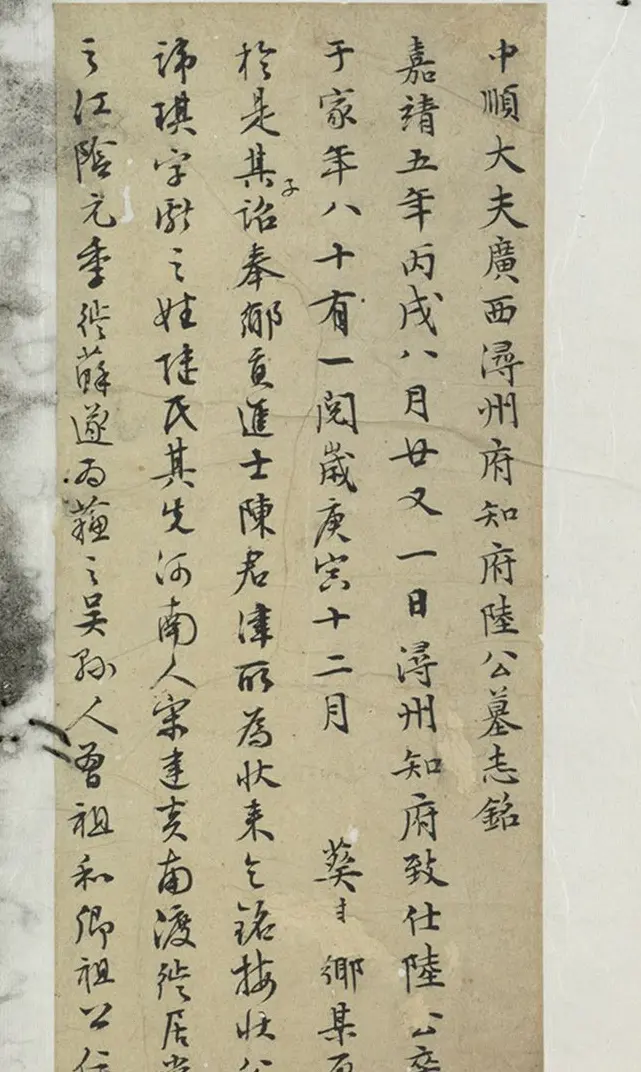 中順大夫廣西潯州府知府陸公墓志銘
嘉靖五年丙戌八月廿又一日潯州知府致仕陸公卒
于家年八十有一閱歲庚寅十二月 葬于鄉某原
於是其子詔奉鄉貢進士陳君津所為狀來乞銘按狀公
諱琪字獻之姓陸氏其先河南人宋建炎南渡徙居常
之江陰元季徙蘇遂為蘇之吳縣人曾祖和卿祖公